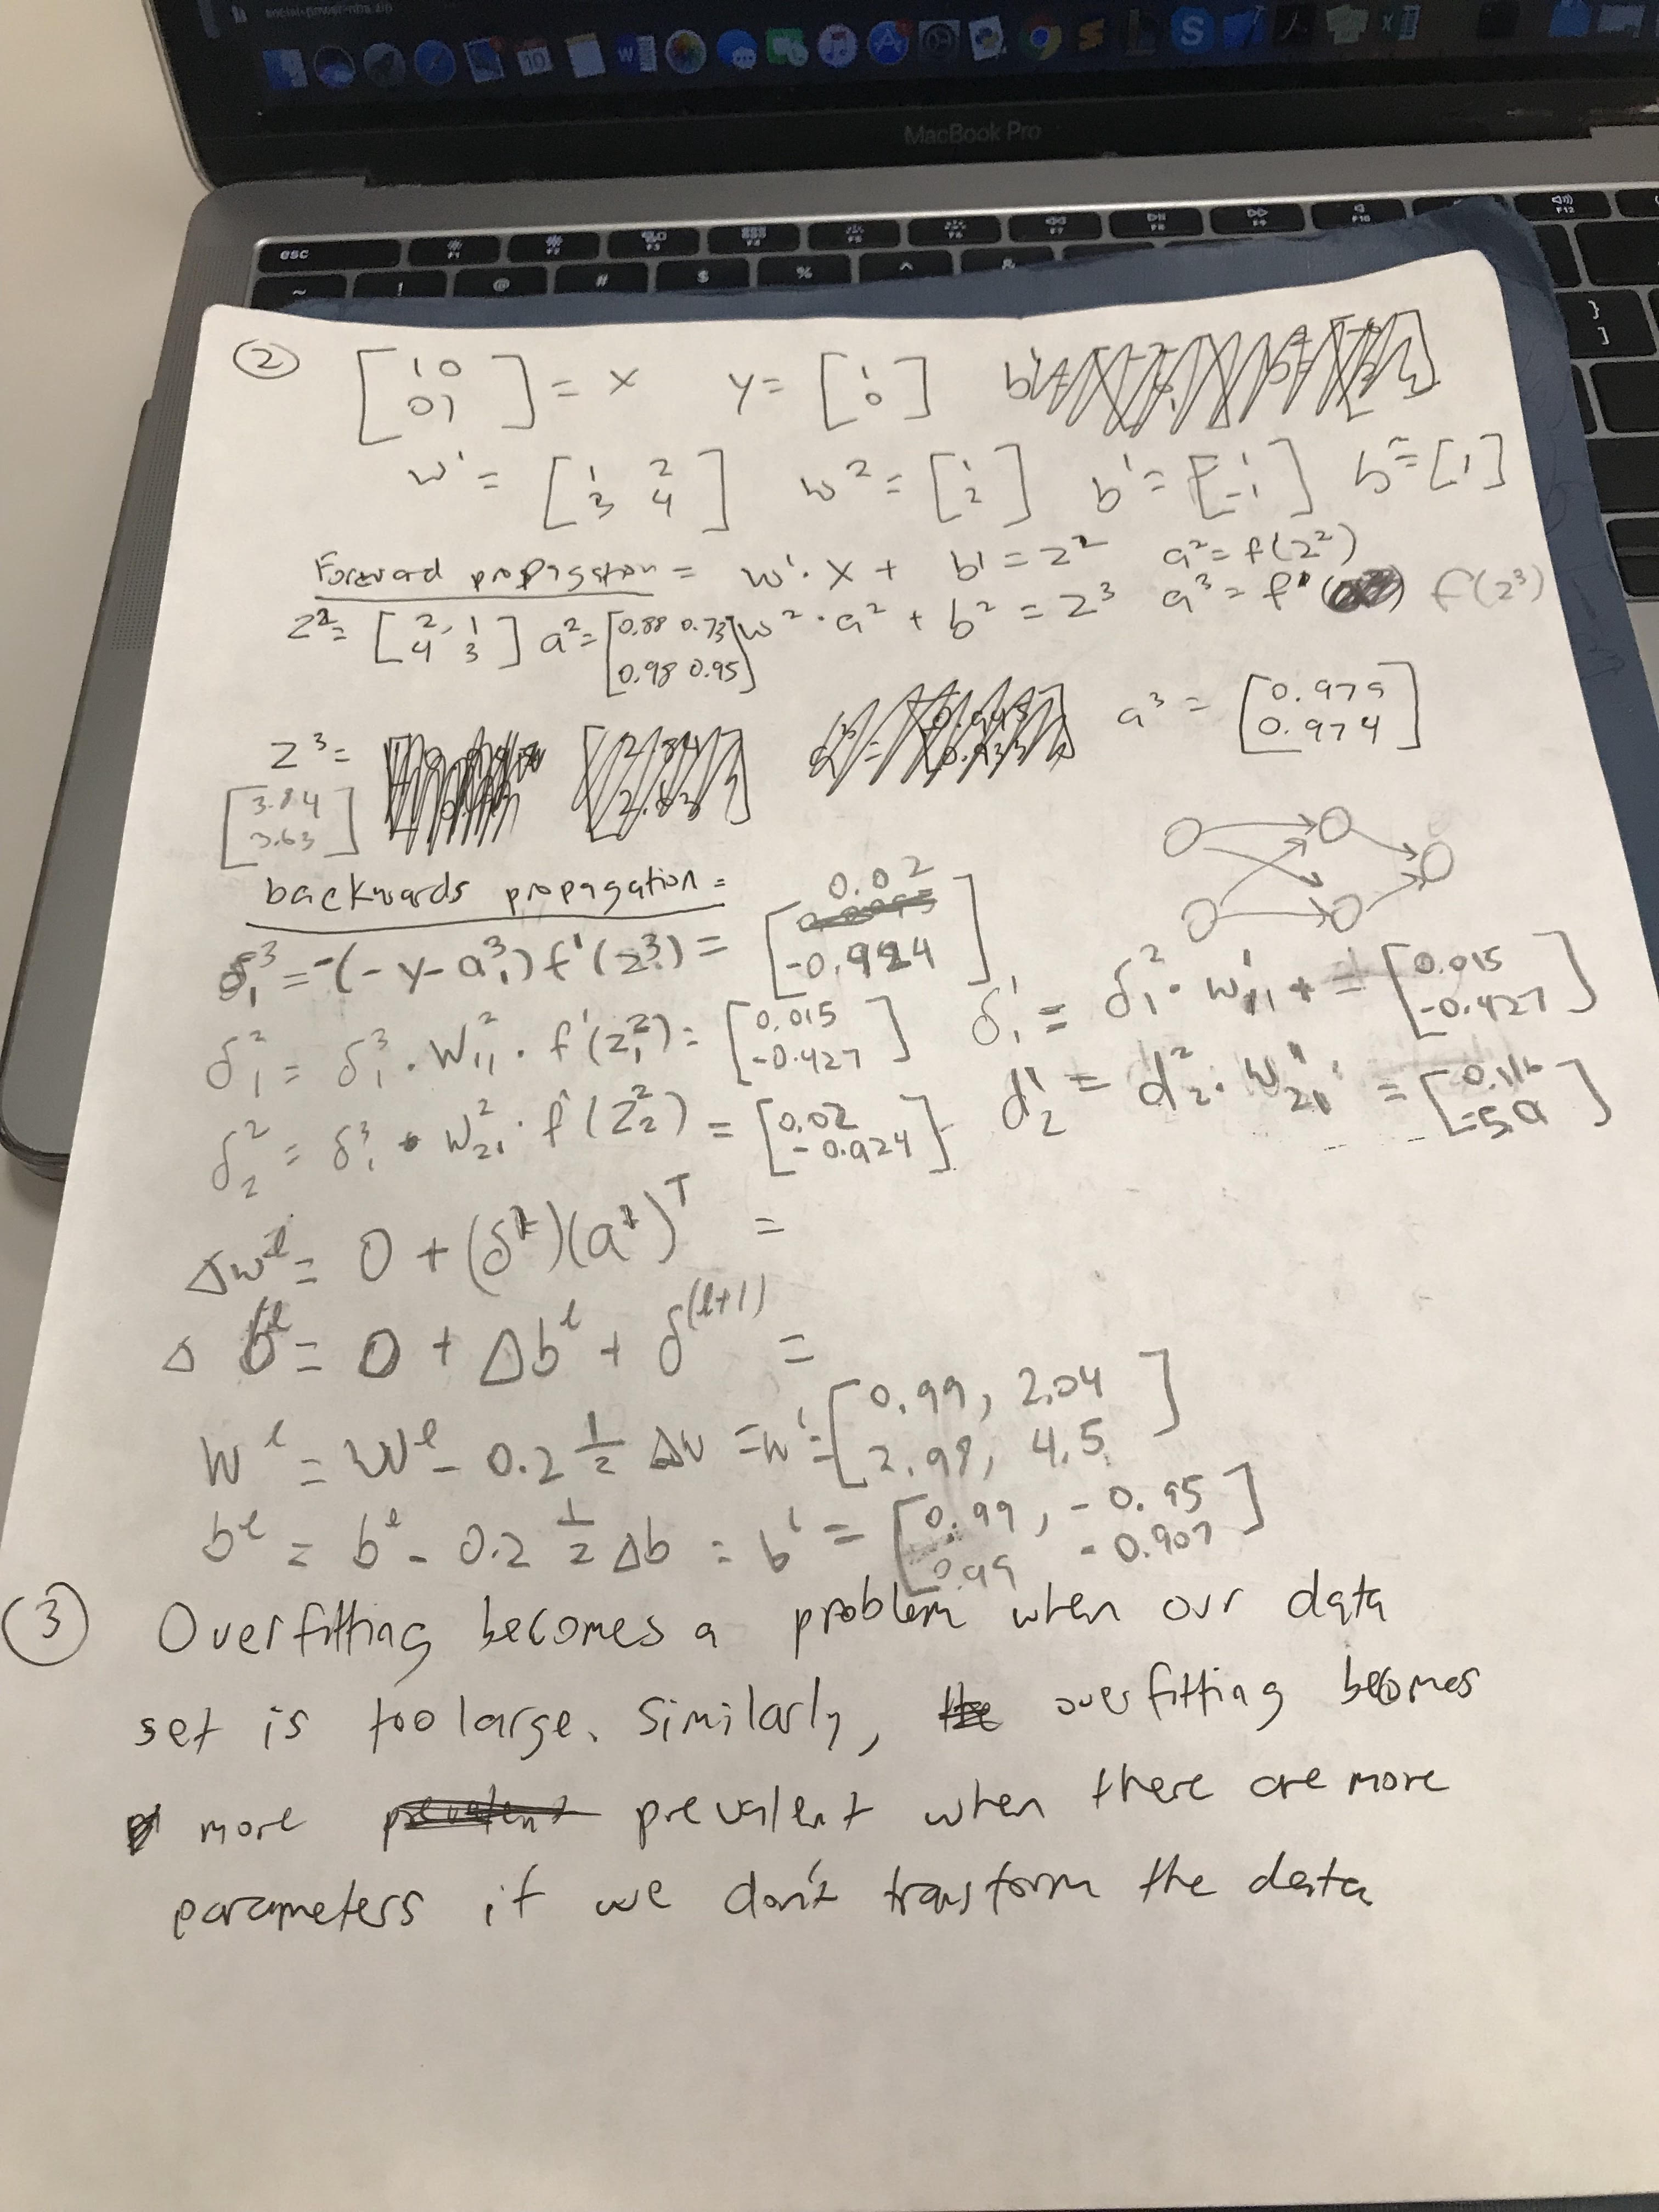 social-power-nba.zip
MacBook Pro
esc F1 F2 F3 F4 F5 F6 F7 F8 F9 F10 F12
~ ! @ # $ % ^ & } ]
② [1 0 0 1] = x y = [1 0]
w¹ = [1 2 3 4] w² = [1 2] b¹ = [1 -1] b² = [1]
Forward propagation = w¹ · x + b¹ = z² a² = f(z²)
z² = [2, 1 4 3] a² = [0.88 0.73 0.98 0.95] w² · a² + b² = z³ a³ = f( f(z³)
z³ = a³ = [0.975 0.974]
[3.84 3.63]
backwards propagation =
δ₁³ = -(-y-a₁³) f'(z³) = [0.02 -0.924]
δ₁² = δ₁³ · W₁₁² · f'(z₁²) = [0.015 -0.427] δ₁¹ = δ₁² · W₁₁¹ = [0.015 -0.427]
δ₂² = δ₁³ · W₂₁² · f'(z₂²) = [0.02 -0.924] d₂¹ = d₂² · W₂₁¹ =
ΔWˡ = 0 + (δ )(a )ᵀ =
Δ bˡ = 0 + Δbˡ + δ⁽ˡ⁺¹⁾ =
Wˡ = Wˡ - 0.2 1/2 ΔW = W¹ = [0.99, 2.04 2.98, 4.5]
bˡ = bˡ - 0.2 1/2 Δb = b¹ = [0.99, -0.95 0.99 -0.907]
③ Overfitting becomes a problem when our data
set is too large. Similarly, the overfitting becomes
more prevalent prevalent when there are more
parameters if we don't transform the data